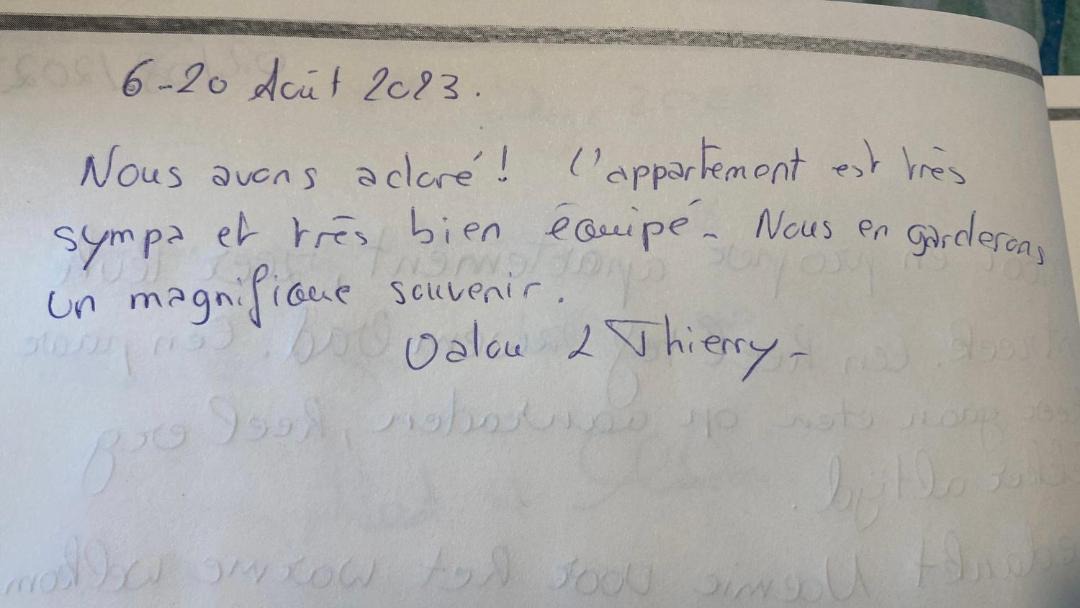 6-20 Août 2023.
Nous avons adoré! l'appartement est très
sympa et très bien équipé. Nous en garderons
un magnifique souvenir.
& Thierry-